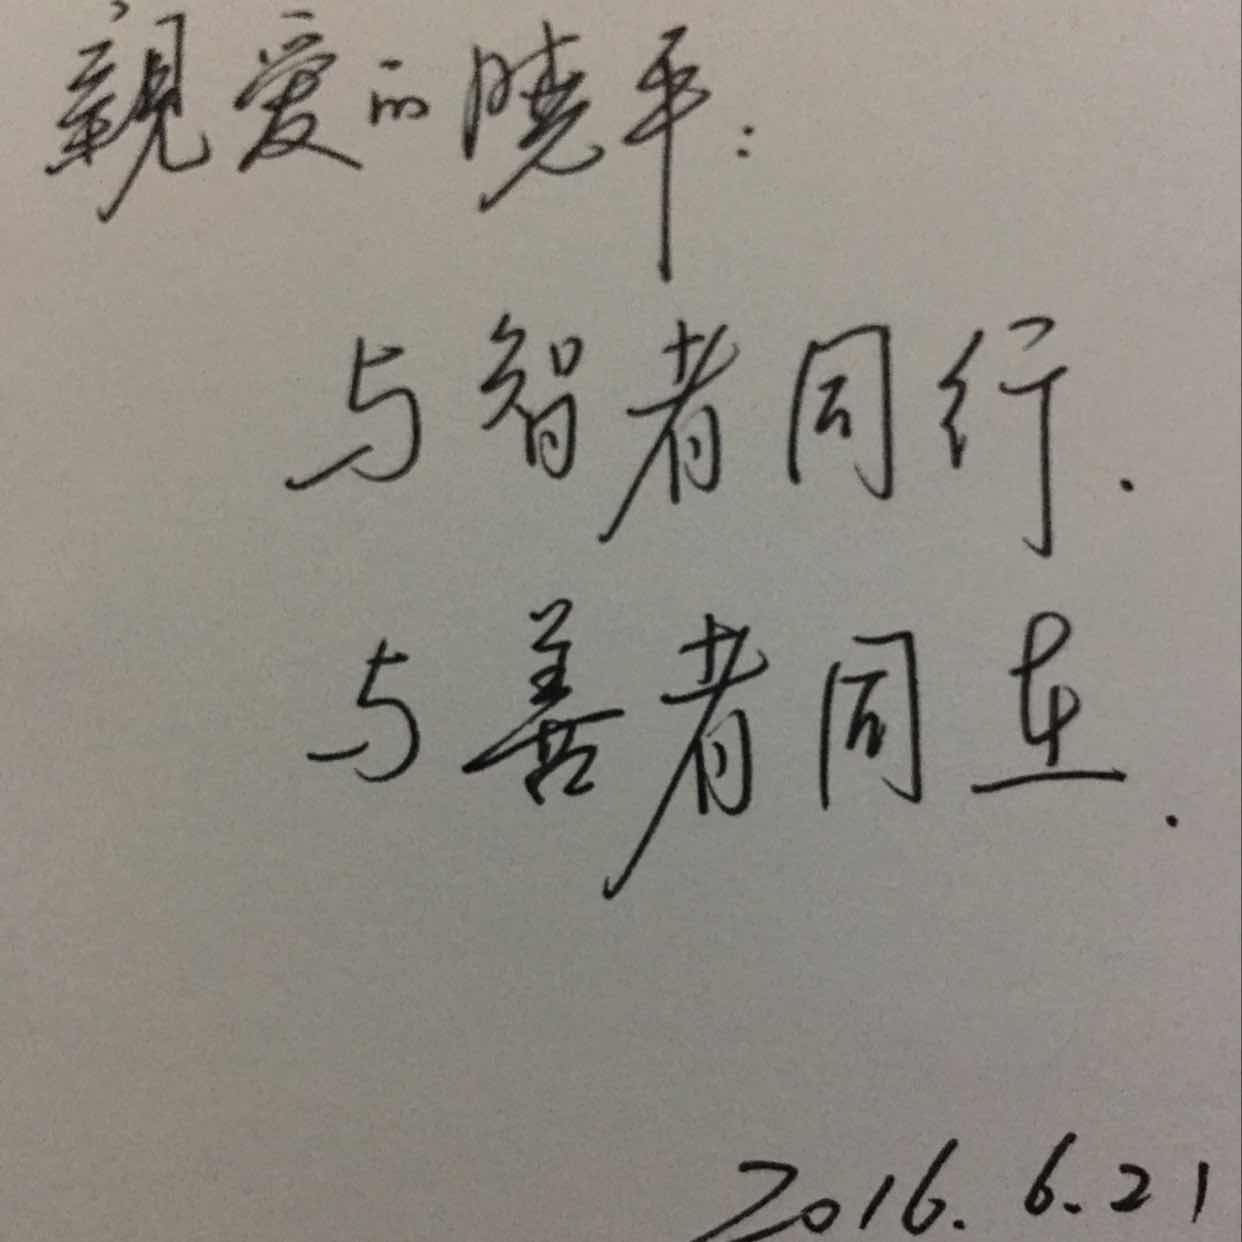 親爱的晓平：
与智者同行.
与善者同在.
2016.6.21